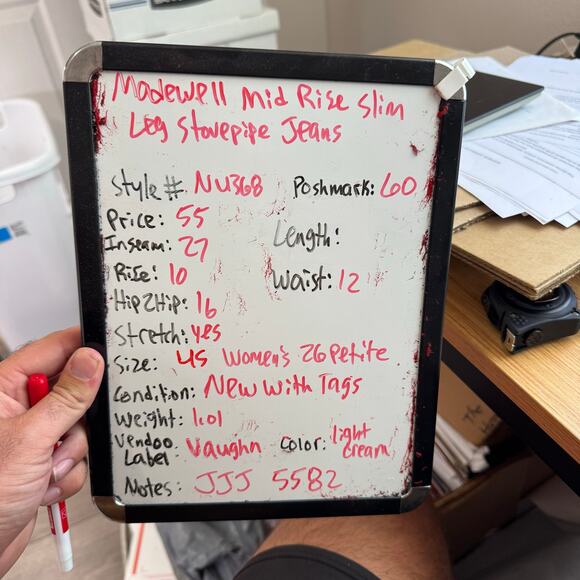 Madewell Mid Rise Slim
Leg Stovepipe Jeans
Style # NU368 Poshmark: 60
Price: 55
Inseam: 27 Length:
Rise: 10 Waist: 12
Hip2Hip: 16
Stretch: yes
Size: US Women's 26 Petite
Condition: New With Tags
Weight: 1.01
Vendoo Label: Vaughn Color: light cream
Notes: JJJ 5582